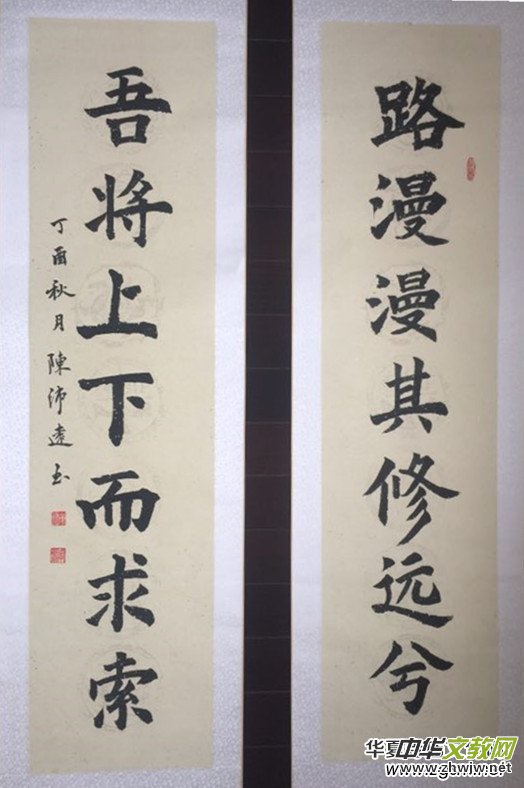 路漫漫其修远兮
吾将上下而求索
丁酉秋月陳沛遠书
华夏中华文教网
www.zhwjw.net